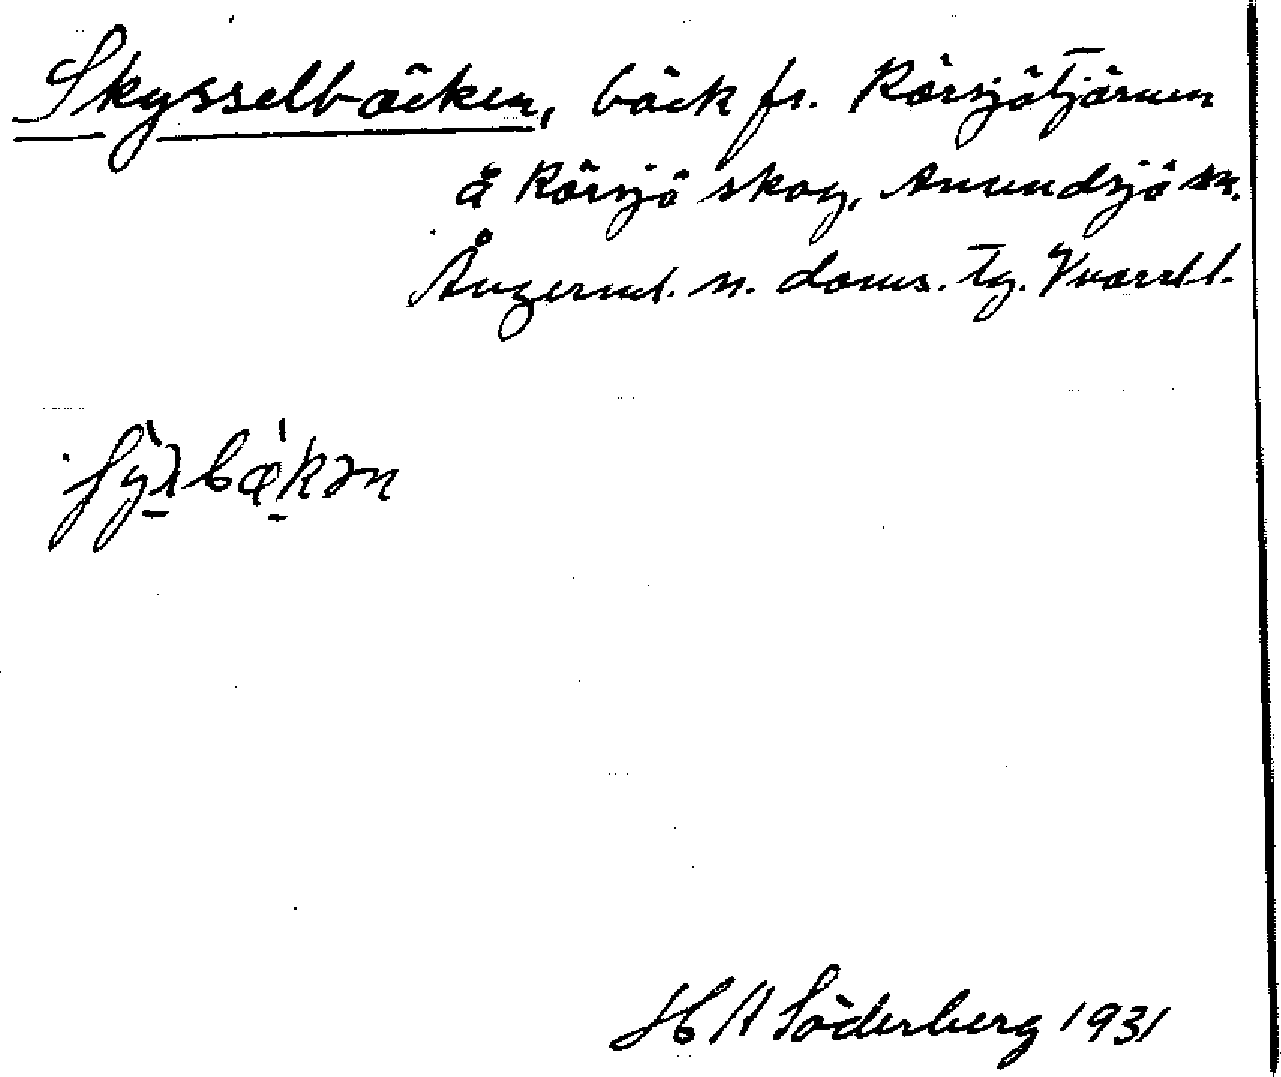 Skysselbäcken, bäck fr. Rörsjötjärnen
å Rörsjö skog, Anundsjö sn.
Ångerml. n. doms. tg. Västernl.
H A Söderberg 1931